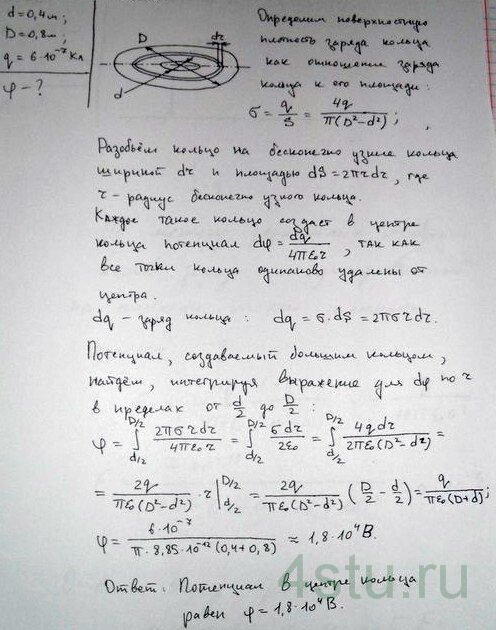 d = 0,4 м;
D = 0,8 м;
q = 6·10⁻⁷ Кл
φ - ?
D
dr
d
Определим поверхностную
плотность заряда кольца
как отношение заряда
кольца к его площади:
σ = q/S = 4q/π(D²-d²);
Разобьём кольцо на бесконечно узкие кольца
шириной dr и площадью dS = 2πrdr, где
r - радиус бесконечно узкого кольца.
Каждое такое кольцо создаст в центре
кольца потенциал dφ = dq/4πε₀r, так как
все точки кольца одинаково удалены от
центра.
dq - заряд кольца: dq = σ·dS = 2πσrdr.
Потенциал, создаваемый большим кольцом,
найдём, интегрируя выражение для dφ по r
в пределах от d/2 до D/2:
φ = ∫_{d/2}^{D/2} 2πσrdr/4πε₀r = ∫_{d/2}^{D/2} σdr/2ε₀ = ∫_{d/2}^{D/2} 4qdr/2πε₀(D²-d²) =
= 2q/πε₀(D²-d²) · r|_{d/2}^{D/2} = 2q/πε₀(D²-d²) (D/2 - d/2) = q/πε₀(D+d);
φ = 6·10⁻⁷/π·8,85·10⁻¹²(0,4+0,8) ≈ 1,8·10⁴ В.
Ответ: Потенциал в центре кольца
равен φ = 1,8·10⁴ В.
4stu.ru